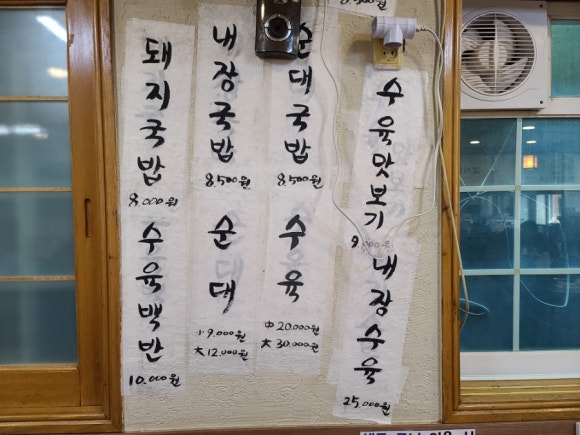 돼지국밥
8,000원
수육백반
10,000원
내장국밥
8,500원
순대
小 9,000원
大 12,000원
순대국밥
8,500원
수육
中 20,000원
大 30,000원
수육맛보기
9,000원
내장수육
25,000원